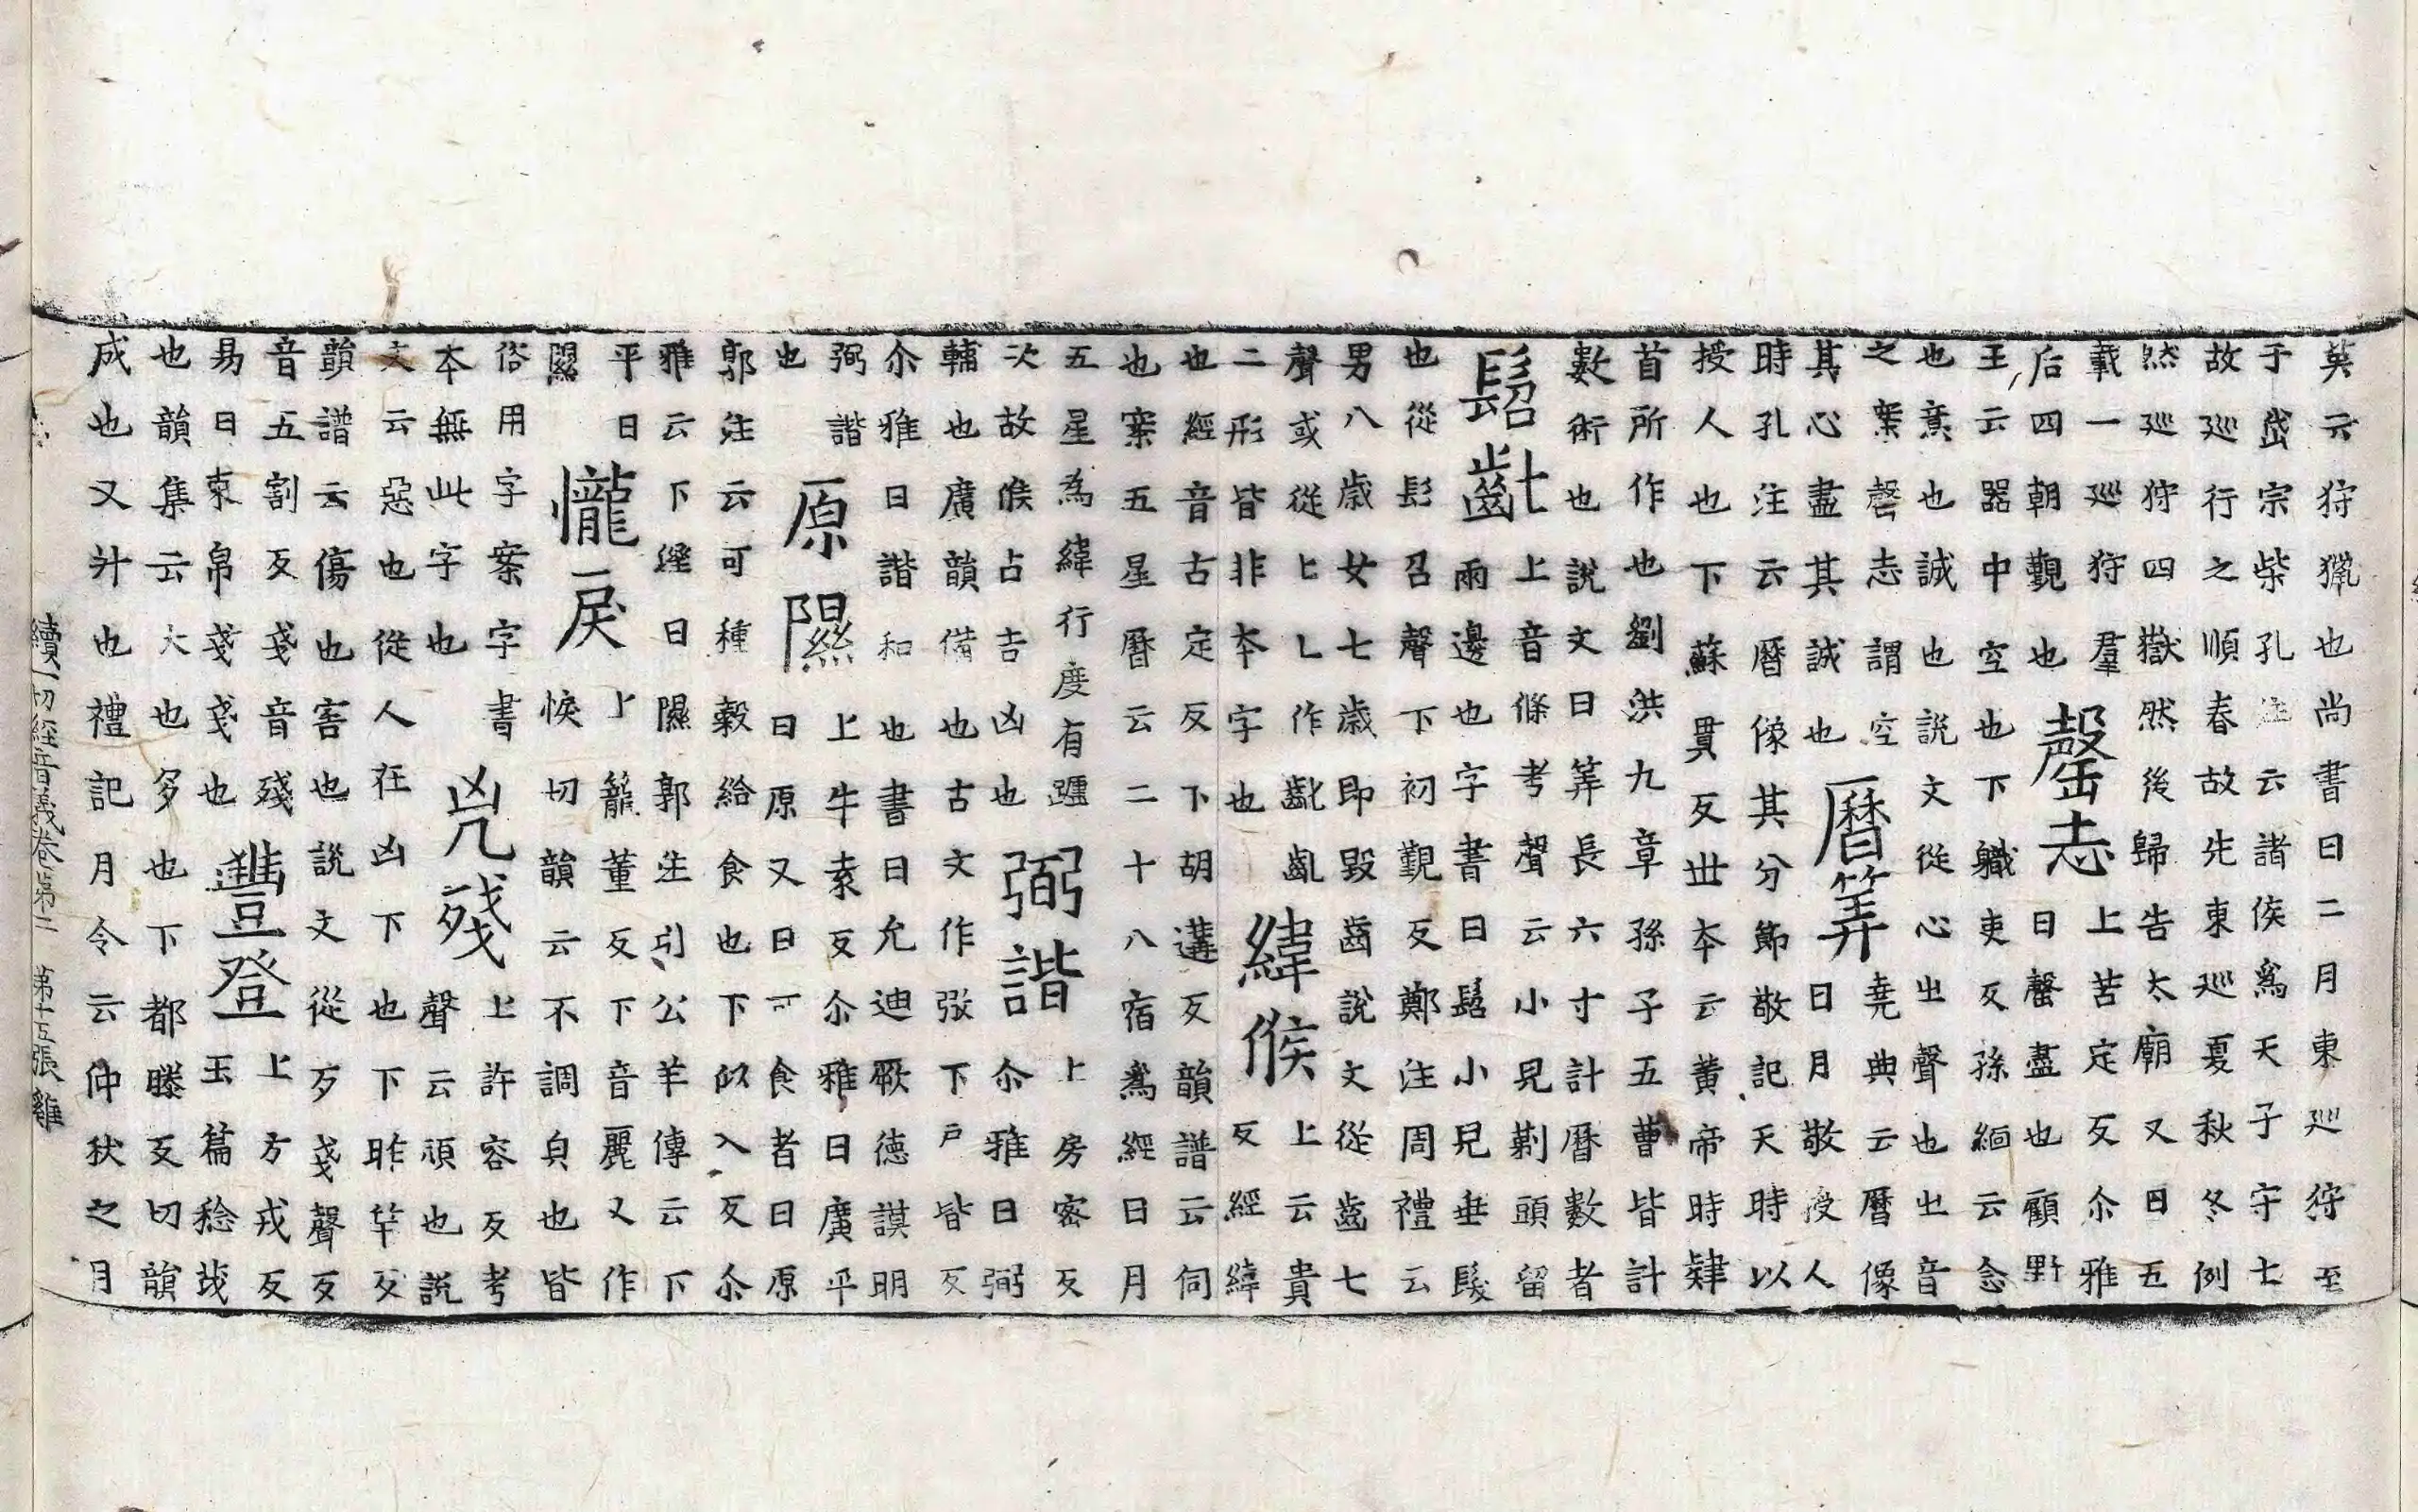 英云狩獵也尚書曰二月東巡狩至
于岱宗柴孔注云諸侯爲天子守七
故巡行之順春故先東巡夏秋冬例
然巡狩四嶽然後歸告太廟又曰五
載一巡狩羣
后四朝覲也
罄志
上苦定反尒雅
曰罄盡也顧野
王云器中空也下軄吏反孫緬云念
也意也誠也說文從心㞢聲也㞢音
之案罄志謂空
其心盡其誠也
曆筭
堯典云曆像
日月敬授人
時孔注云曆像其分節敬記天時以
授人也下蘇貫反世本云黃帝時肄
首所作也劉洪九章孫子五曹皆計
數術也說文曰筭長六寸計曆數者
髫齓
上音條考聲云小兒剃頭留
兩邊也字書曰髫小兒垂髮
也從髟召聲下初覲反鄭注周禮云
男八歲女七歲即毀齒說文從齒七
聲或從匕乚作齔亂
二形皆非本字也
緯候
上云貴
反經緯
也經音古定反下胡遘反韻譜云伺
也案五星曆云二十八宿爲經日月
五星爲緯行度有躔
次故候占吉凶也
弼諧
上房密反
尒雅曰弼
輔也廣韻備也古文作㢸下戶皆反
尒雅曰諧和也書曰允迪厥德謨明
弼諧
也
原隰
上牛袁反尒雅曰廣平
曰原又曰可食者曰原
郭注云可種穀給食也下似入反尒
雅云下溼曰隰郭注引公羊傳云下
平曰
隰
㦕戾
上籠董反下音麗又作
悷切韻云不調皃也皆
俗用字案字書
本無此字也
兇殘
上許容反考
聲云頑也說
文云惡也從人在凶下也下昨竿反
韻譜云傷也害也說文從歹戔聲歹
音五割反戔音殘
易曰束帛戔戔也
豐登
上方戎反
玉篇稔茂
也韻集云大也多也下都滕反切韻
成也又升也禮記月令云仲秋之月
續一切經音義卷第二 第十五張 雞